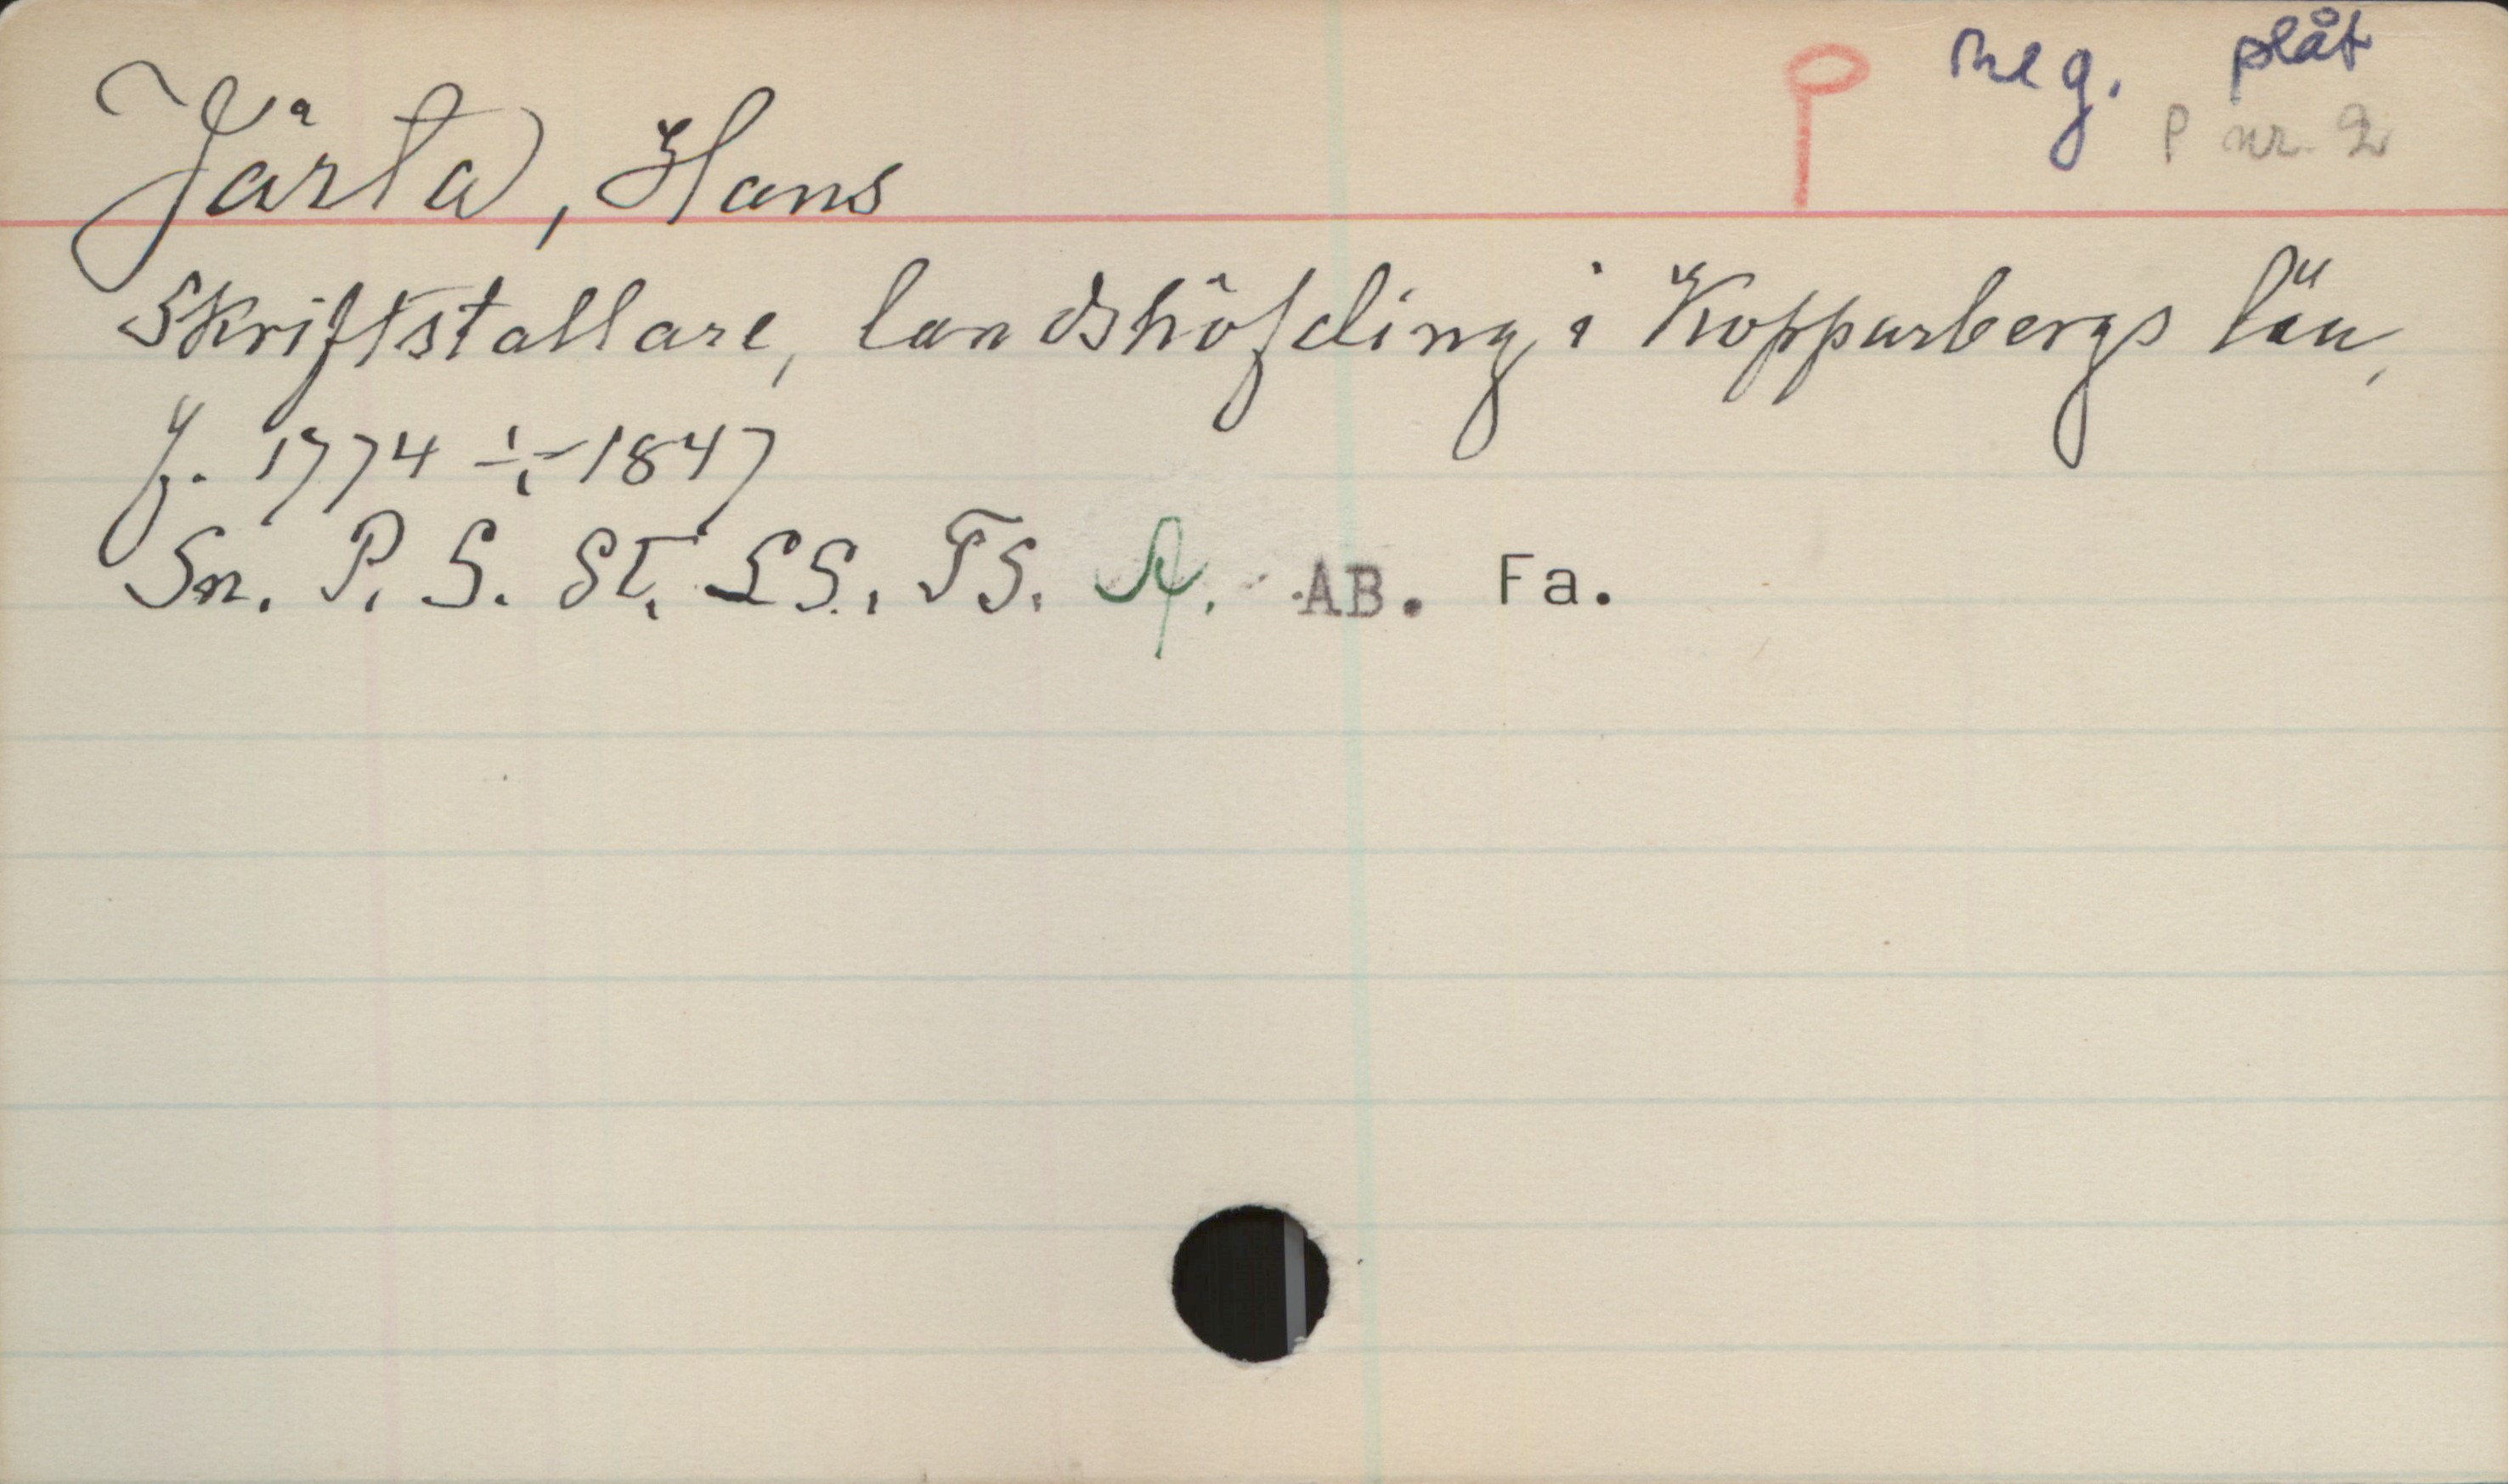 neg. plåt
P nr. 2
Järta, Hans
Skriftstallare, landshöfding i Kopparbergs län,
f. 1774 ÷ 1847
Sn. P. S. St. LS. TS. A. AB. Fa.